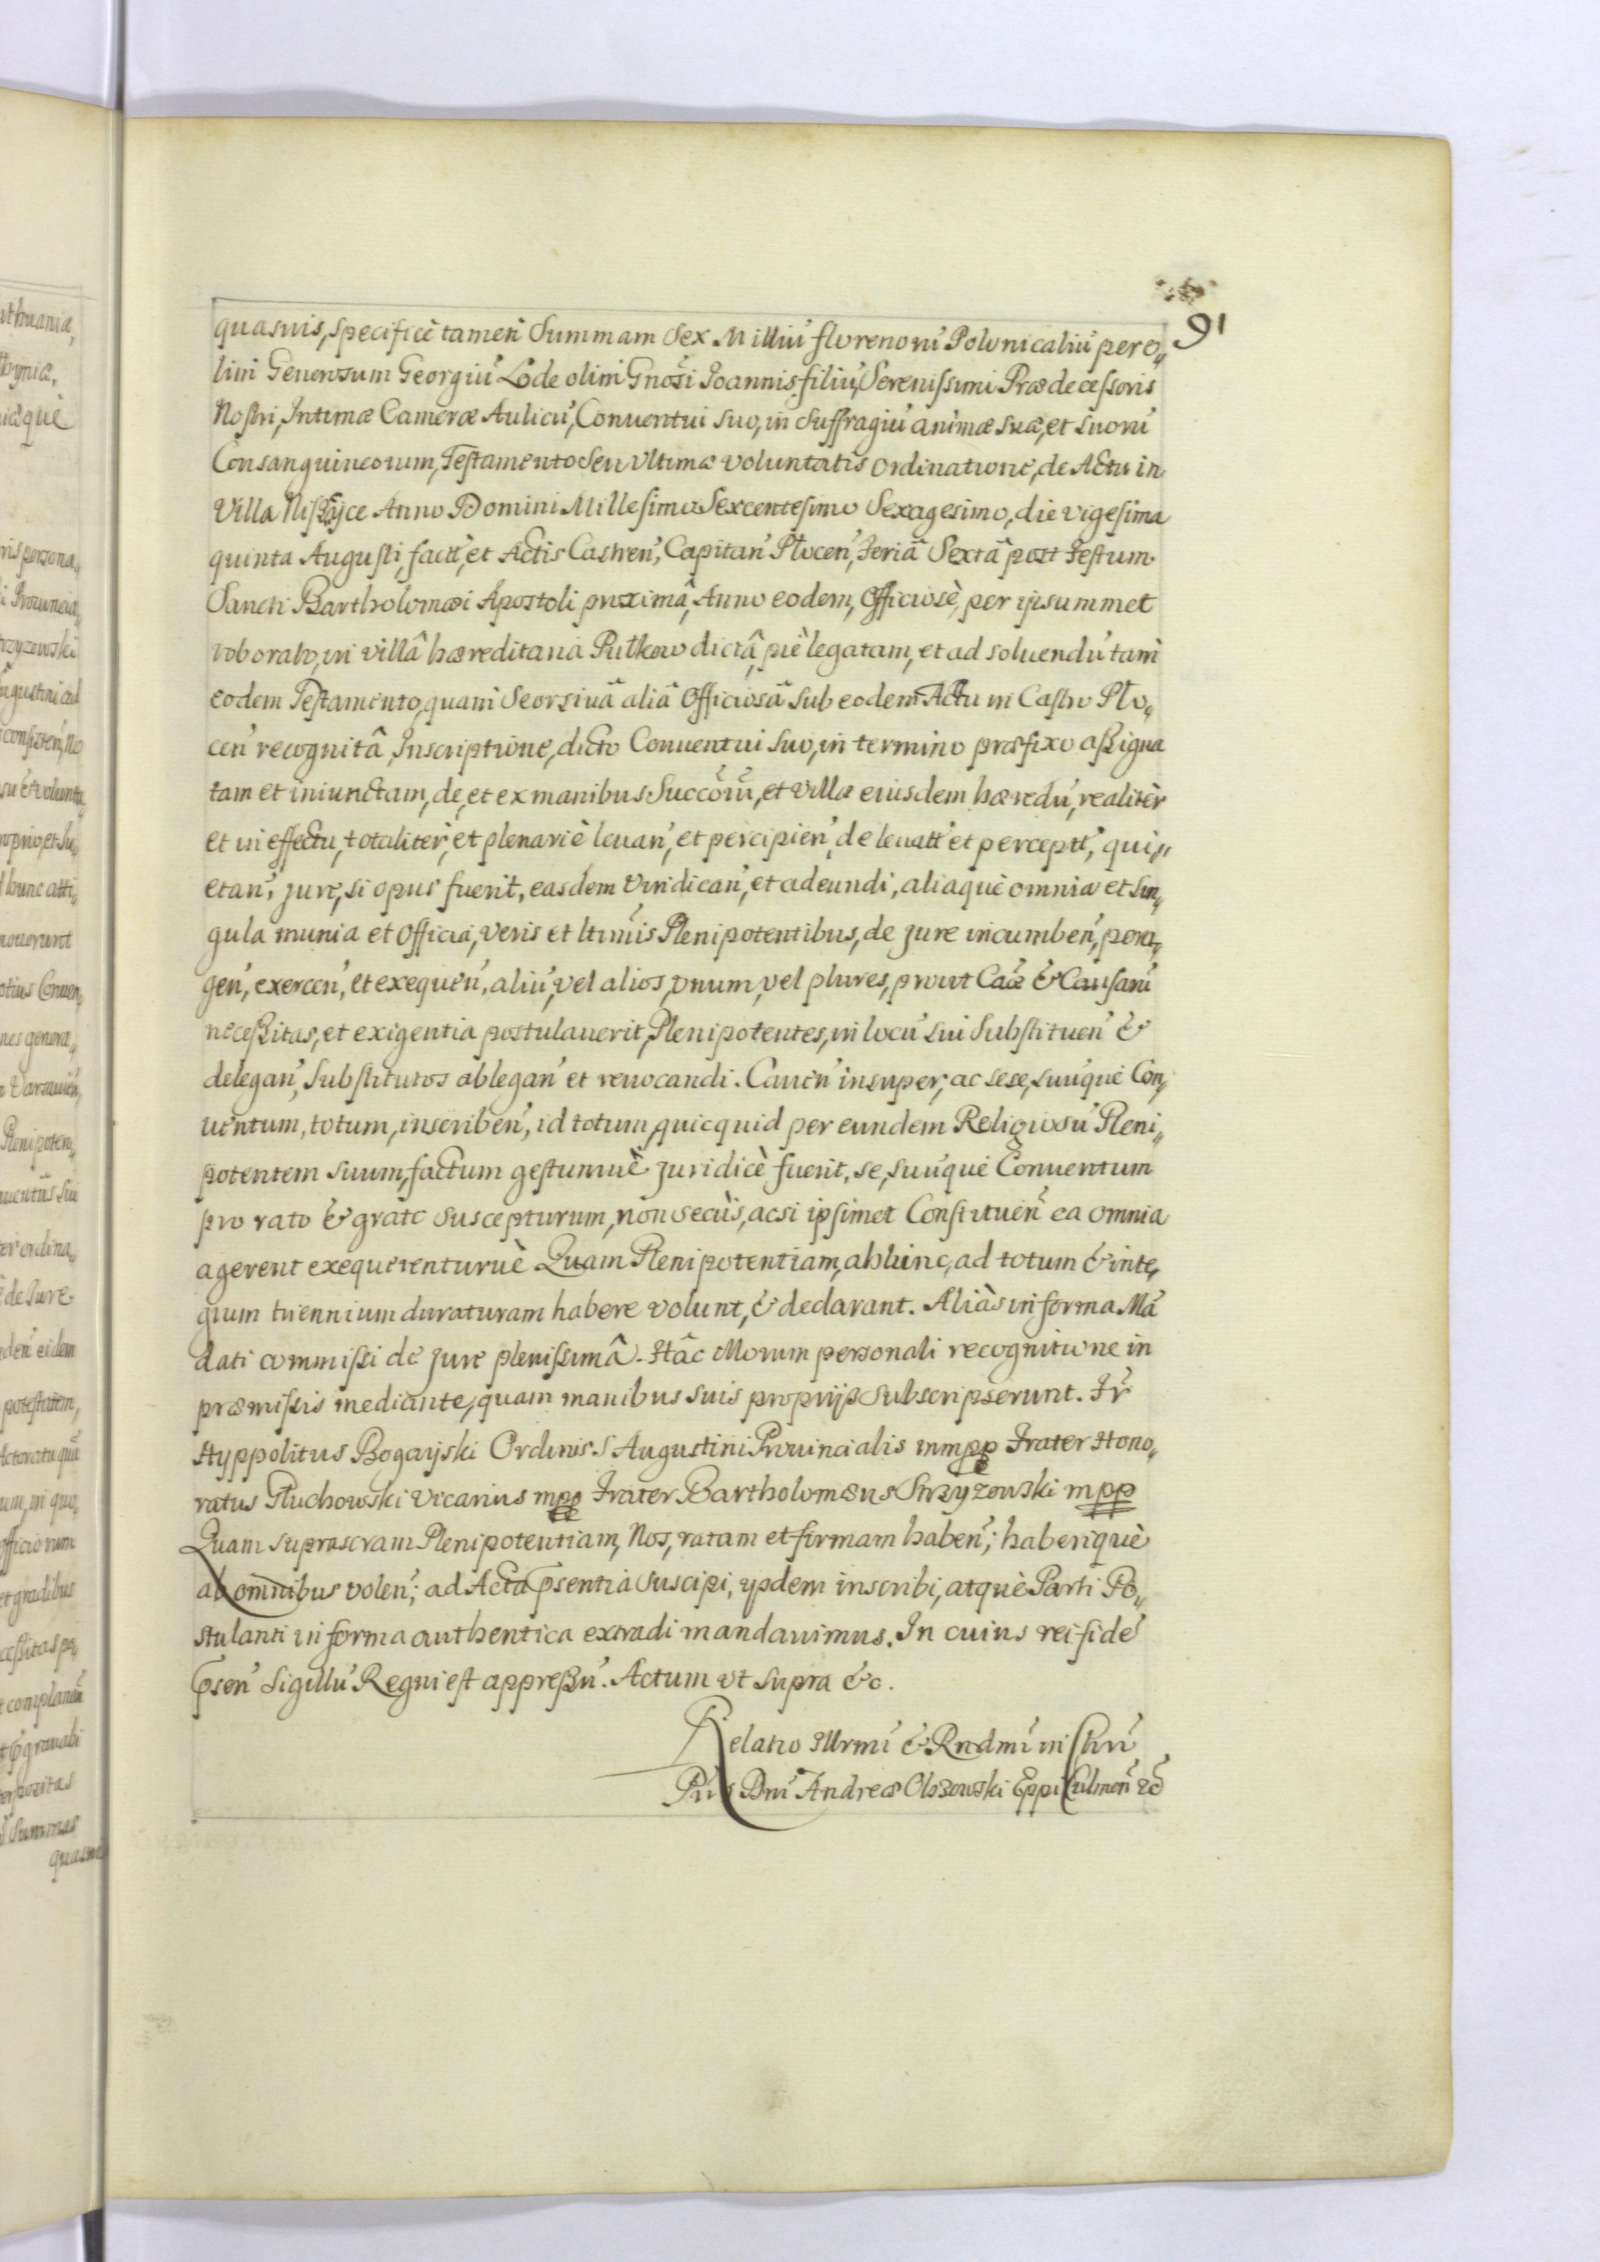 91
quasuis, specificè tamen Summam Sex Milliú florenorú Polonicaliú per o„
lim Generosum Georgiú Lode olim Gnosi Joannis filiú, Serenissimi Prædecessoris
Nostri, Intimæ Cameræ Aulicú, Conuentui suo, in Suffragiú animæ suæ, et suorú
Consanguineorum, Testamento Seu Vltimæ voluntatis Ordinatione, de Actu in
Villa Anno Domini Millesimo Sexcentesimo Sexagesimo, die vigesima
quinta Augusti, fact, et Actis Castren, Capitan Plocen, Feriâ Sextâ post Festum
Sancti Bartholomæi Apostoli proximâ, Anno eodem, Officiosè, per ipsummet
roborato, in villâ hæreditaria Pulkow dictâ, piè legatam, et ad soluendú tam
eodem Testamento, quam Seorsiuâ aliâ Officiosâ sub eodem Actu in Castro Plo„
cen recognitâ Inscriptione, dicto Conuentui suo, in termino præfixo assigna
tam et iniunctam, de, et ex manibus Succorú, et Villæ eiusdem hæredú, realitèr
et in effectu, totalitèr, et plenariè leuan, et percipien, de leuatt et perceptt, qui„
etan, jure, si opus fuerit, easdem vindican, et adeundi, aliaquè omnia et sin„
gula munia et Officia, veris et ltimis Plenipotentibus, de jure incumben, pera„
gen, exercen, et exequen, aliú, vel alios, vnum, vel plures, prout Caæ & Causarú
necessitas, et exigentia postulauerit, Plenipotentes, in locú sui Substituen &
delegan, Substitutos ablegan et reuocandi. Cauen insuper, ac sese, suúquè Con„
uentum, totum, inscriben, id totum, quicquid per eundem Religiosú Pleni„
potentem suum, factum gestumuè juridicè fuerit, se, suúquè Conuentum
pro rato & grato suscepturum, non secùs, acsi ipsimet Constituen ea omnia
agerent exequerenturuè Quam Plenipotentiam, abhinc, ad totum & inte„
grum triennium duraturam habere volunt, & declarant. Aliàs in forma Mã
dati commissi de jure plenissimâ. Hâc Morum personali recognitione in
præmissis mediante, quam manibus suis proprijs subscripserunt. Fr
Hyppolitus Bogayski Ordinis S Augustini Prouincialis mmpp Frater Hono„
ratus Pluchowski Vicarius mpp Frater Bartholomæus Strzyzowski mpp
Quam suprascram Plenipotentiam, Nos, ratam et firmam haben; haberiquè
ab omnibus volen; ad Acta psentia suscipi, ysdem inscribi, atquè Parti Po„
stulanti in forma authentica extradi mandauimus. In cuius rei fidé
psen Sigillú Regni est appressú. Actum vt supra &c.
Relatio Illrmi & Rndmi in Chri
Pris Dni Andreæ Olszowski Eppi Culmen